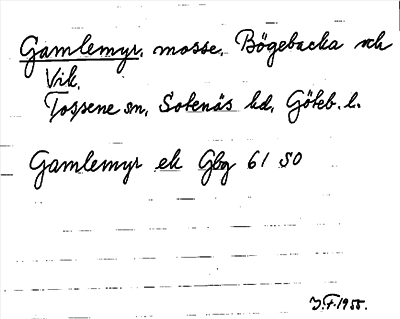 Gamlemyr, mosse, Bögebacka och
Vik.
Tossene sn, Sotenäs hd, Göteb. l.
Gamlemyr ek Gbg 61 SO
J.F. 1955.